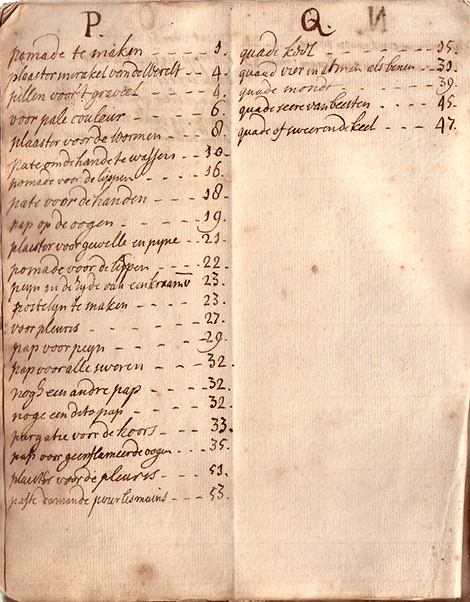 P.
pomade te maken - - - - 1.
plaaster mirakel van de Werelt - - 4.
pillen voor 't graveel - - - 4.
voor pale couleur - - - - 6.
plaaster voor de Wormen - - - 8.
pate om de hande te wassen - - - 10.
pomade voor de lippen - - - 16.
pate voor de handen - - - 18.
pap op de oogen - - - - 19.
plaister voor geswelle en pyne - - 21.
pomade voor de lippen - - - 22.
peijn in de zyde van een kraamv 23.
postelyn te maken - - - - 23.
voor pleuris - - - - - 27.
pap voor peijn - - - - 29.
pap voor alle sweren - - - 32.
nogh een andre pap - - - 32.
noge een dito pap - - - - 32.
purgatie voor de koors - - - 33.
pap voor geinflameerde oogen - - - 35.
plaister voor de pleuris - - - - 51.
paste damande pour les mains - - - 53.
Q.
quade keel - - - - - - - - 15.
quaad vier in armen als benen - - 31.
quade mondt - - - - - - - 39.
quade seere van beesten - - - - 45.
quade of sweerende keel - - - - 47.